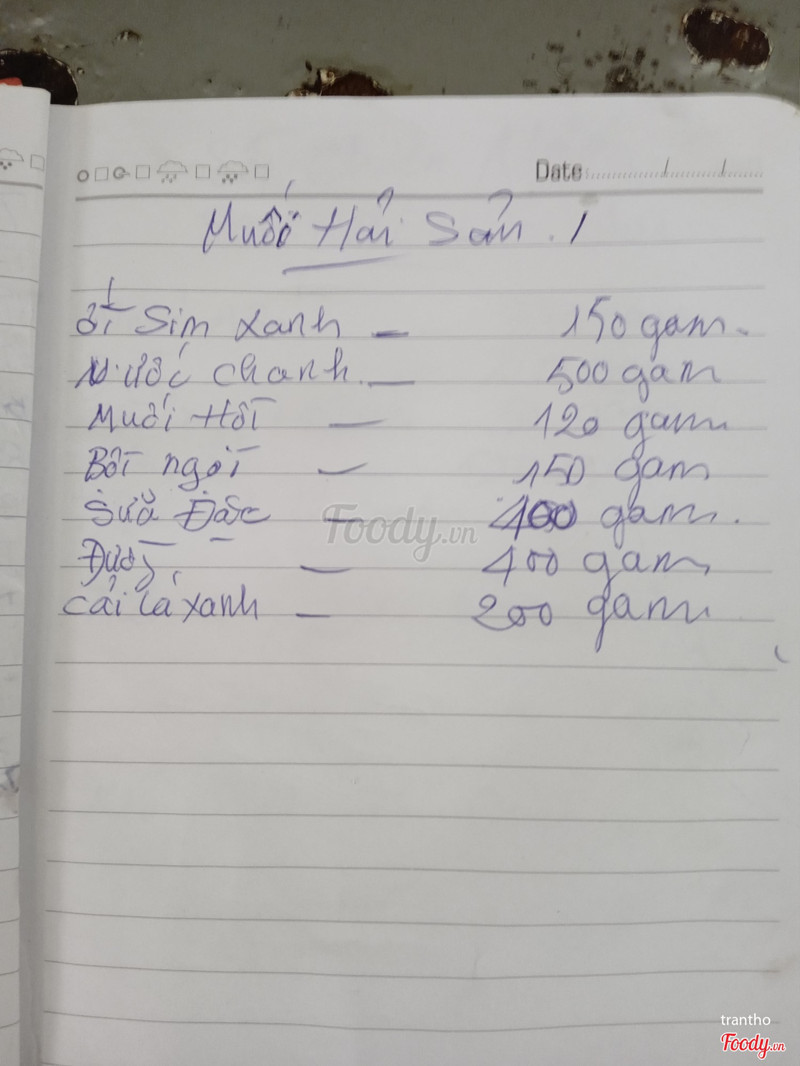 Date
Muối Hải Sản. 1
ớt Sim xanh - 150 gam.
Nước chanh - 500 gam
Muối Hột - 120 gam
Bột ngọt - 150 gam
Sữa Đặc - 400 gam.
Đường - 400 gam
cải lá xanh - 200 gam
Foody.vn
trantho
Foody.vn